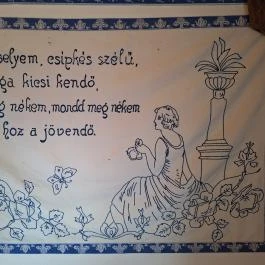 selyem, csipkés szélű,
ga kicsi kendő,
g nékem, mondd meg nékem
hoz a jövendő.